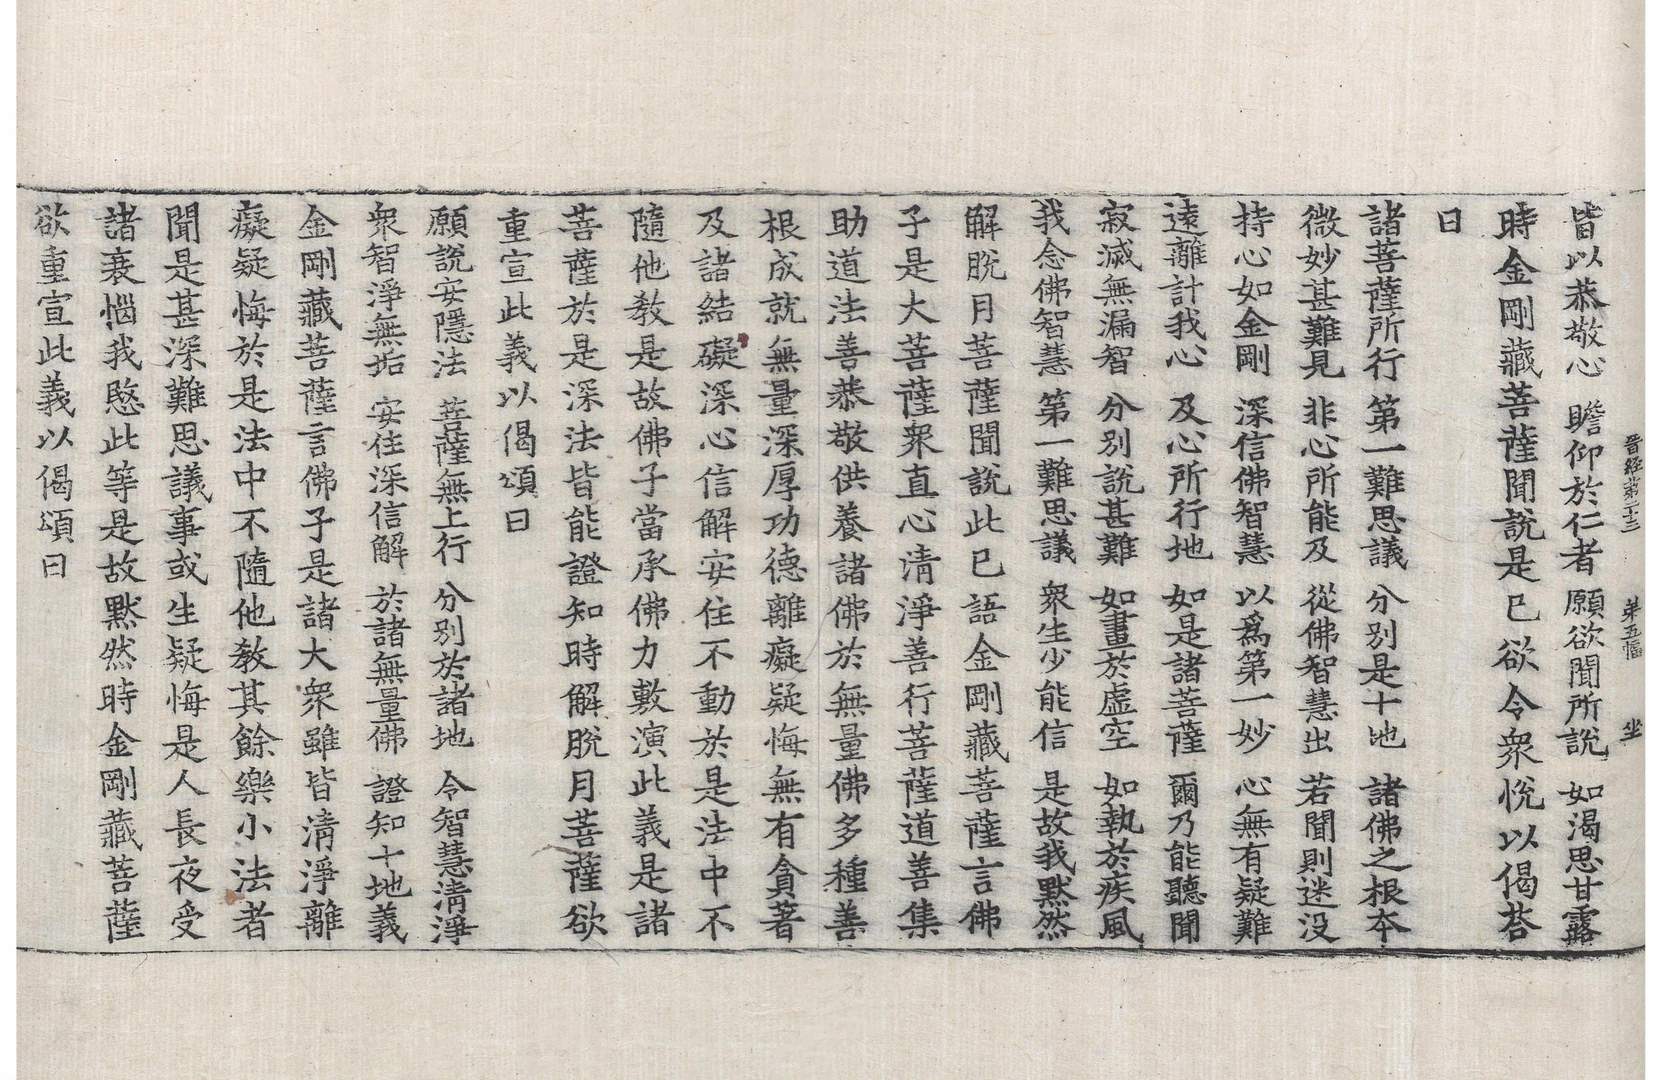 晉經第二十三 第五幅 坐
皆以恭敬心 瞻仰於仁者 願欲聞所說 如渴思甘露
時金剛藏菩薩聞說是已欲令衆悅以偈荅
曰
諸菩薩所行 第一難思議 分別是十地 諸佛之根本
微妙甚難見 非心所能及 從佛智慧出 若聞則迷没
持心如金剛 深信佛智慧 以爲第一妙 心無有疑難
遠離計我心 及心所行地 如是諸菩薩 爾乃能聽聞
寂滅無漏智 分別說甚難 如畫於虛空 如執於疾風
我念佛智慧 第一難思議 衆生少能信 是故我默然
解脫月菩薩聞說此已語金剛藏菩薩言佛
子是大菩薩衆直心清淨善行菩薩道善集
助道法善恭敬供養諸佛於無量佛多種善
根成就無量深厚功德離癡疑悔無有貪著
及諸結礙深心信解安住不動於是法中不
隨他教是故佛子當承佛力敷演此義是諸
菩薩於是深法皆能證知時解脫月菩薩欲
重宣此義以偈頌曰
願說安隱法 菩薩無上行 分別於諸地 令智慧清淨
衆智淨無垢 安住深信解 於諸無量佛 證知十地義
金剛藏菩薩言佛子是諸大衆雖皆清淨離
癡疑悔於是法中不隨他教其餘樂小法者
聞是甚深難思議事或生疑悔是人長夜受
諸衰惱我愍此等是故默然時金剛藏菩薩
欲重宣此義以偈頌曰